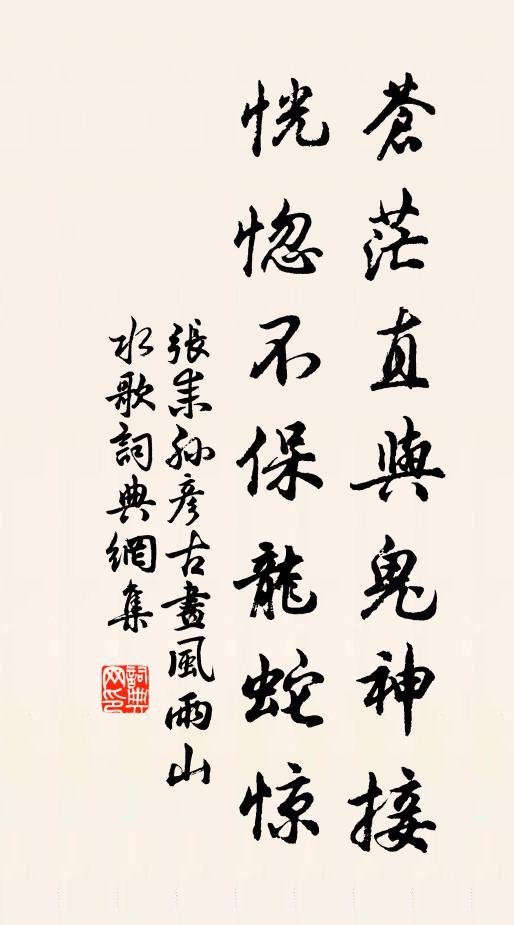 蒼茫直與鬼神接
恍惚不保龍蛇惊
張耒孫彥古畫風雨山
水歌詞典網集
詞典
网印